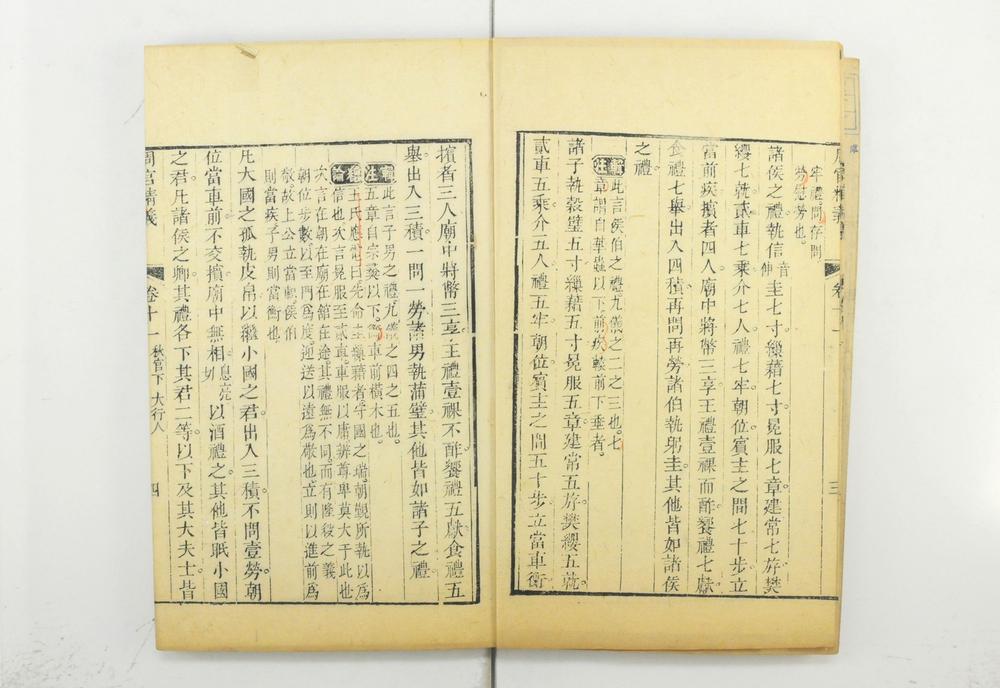 牢禮問存問
勞慰勞也。
諸侯之禮執信音伸圭七寸繅藉七寸冕服七章建常七斿樊
纓七就貳車七乘介七人禮七牢朝位賓主之間七十步立
當前疾擯者四人廟中將幣三享王禮壹祼而酢饗禮七獻
食禮七舉出入四積再問再勞諸伯執躬圭其他皆如諸侯
之禮
輯注此言侯伯之禮九儀之二之三也。七
章謂自華蟲以下前疾轅前下垂者。
諸子執穀璧五寸繅藉五寸冕服五章建常五斿樊纓五就
貳車五乘介五人禮五牢朝位賓主之間五十步立當車衡
擯者三人廟中將幣三享王禮壹祼不酢饗禮五獻食禮五
舉出入三積一問一勞諸男執蒲璧其他皆如諸子之禮
輯注此言子男之禮九儀之四之五也。
五章自宗彝以下。衡車前橫木也。
總論王氏應電曰先命圭繅藉者守國之瑞朝覲所執以爲
信也次言晃服至貳車車服以庸辨尊卑莫大于此也
次言在朝在廟在館在途其禮無不同而有隆殺之義
朝位步數以至門爲度迎送以遠爲敬也立則以進前爲
敬故上公立當軹侯伯
則當疾子男則當衡也
凡大國之孤執皮帛以繼小國之君出入三積不問壹勞朝
位當車前不交擯廟中無相息亮切以酒禮之其他皆眡小國
之君凡諸侯之卿其禮各下其君二等以下及其大夫士皆
周官精義 卷十一 秋官下 大行人 四